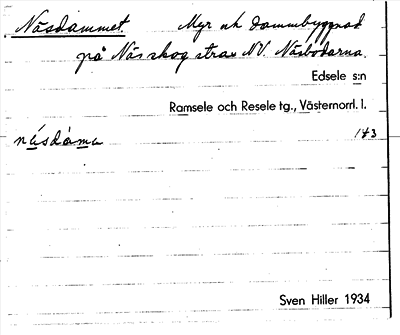 Näsdammet. Myr och dammbyggnad
på Näs skog strax NV. Näsbodarna.
Edsele s:n
Ramsele och Resele tg., Västernorrl. l.
nä̀sdàme 143
Sven Hiller 1934